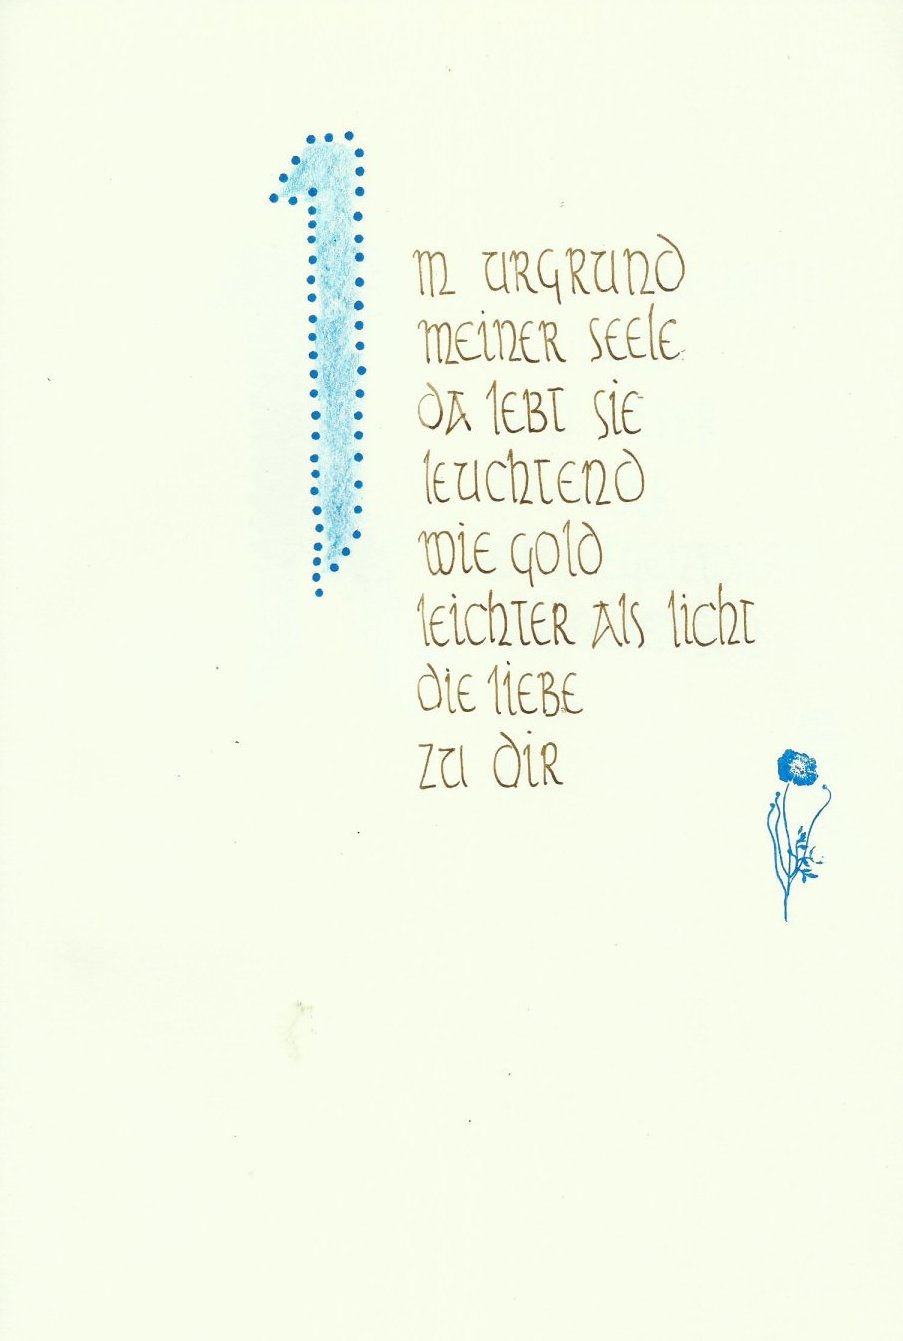 Im Urgrund
meiner Seele
da lebt sie
leuchtend
wie Gold
leichter als Licht
die Liebe
zu dir